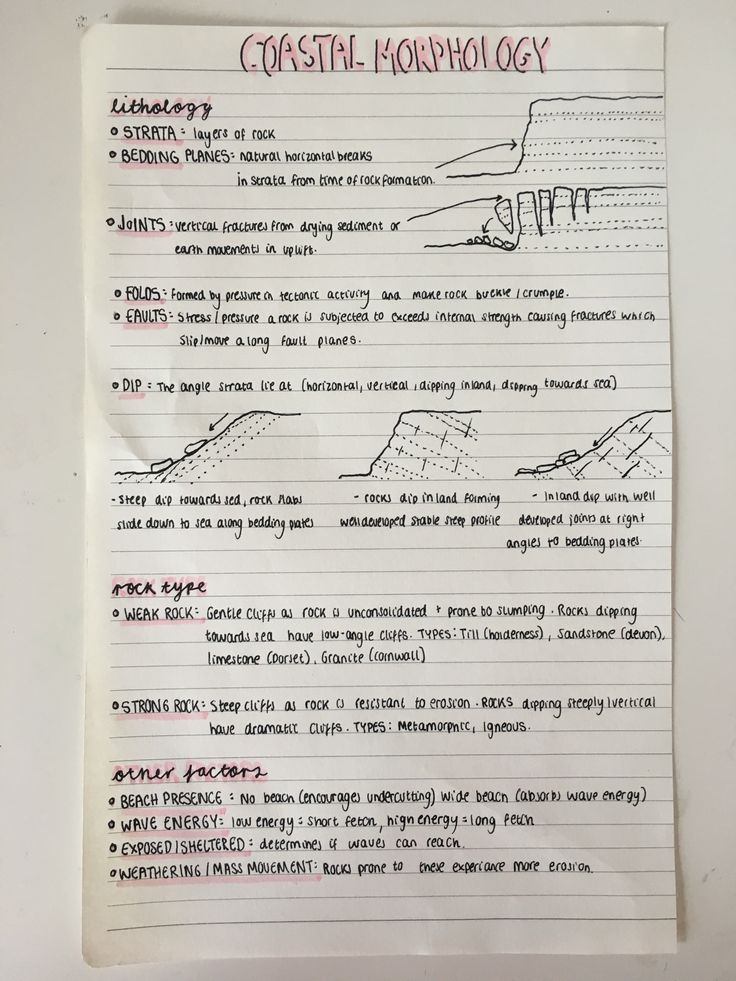 COASTAL MORPHOLOGY
lithology
• STRATA: layers of rock
• BEDDING PLANES: natural horizontal breaks
in strata from time of rock formation.
• JOINTS: vertical fractures from drying sediment or
earth movements in uplift.
• FOLDS: formed by pressure in tectonic activity and make rock buckle/crumple.
• FAULTS: Stress/pressure a rock is subjected to exceeds internal strength causing fractures which
slip/move along fault planes.
• DIP: The angle strata lie at (horizontal, vertical, dipping inland, dipping towards sea)
- steep dip towards sea, rock slabs
slide down to sea along bedding plates
- rocks dip inland forming
well developed stable steep profile
- Inland dip with well
developed joints at right
angles to bedding plates.
rock type
• WEAK ROCK: Gentle cliffs as rock is unconsolidated + prone to slumping. Rocks dipping
towards sea have low-angle cliffs. TYPES: Till (holderness), Sandstone (devon),
limestone (Dorset), Granite (cornwall)
• STRONG ROCK: Steep cliffs as rock is resistant to erosion. ROCKS dipping steeply/vertical
have dramatic cliffs. TYPES: Metamorphic, Igneous.
other factors
• BEACH PRESENCE: No beach (encourages undercutting) wide beach (absorbs wave energy)
• WAVE ENERGY: low energy = short fetch, high energy = long fetch
• EXPOSED/SHELTERED: determines if waves can reach.
• WEATHERING/MASS MOVEMENT: Rocks prone to these experiance more erosion.